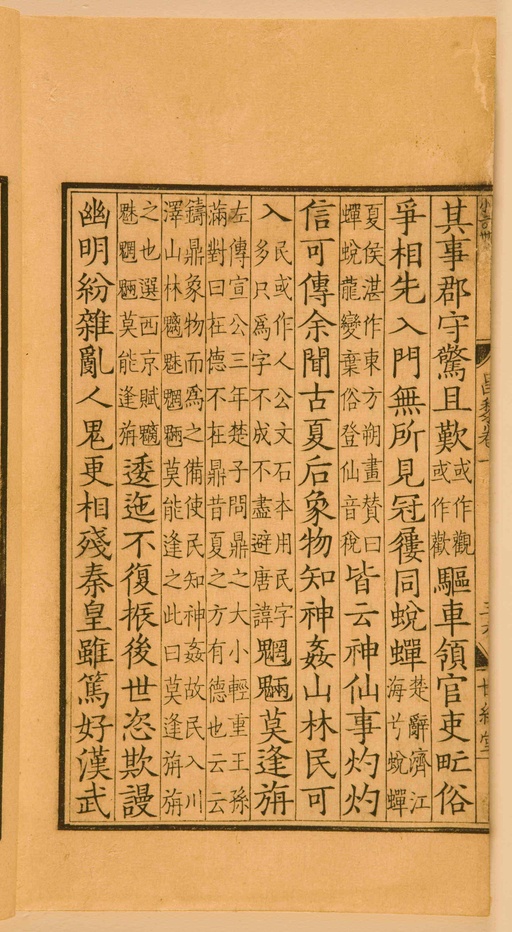 其事郡守驚且歎或作觀或作歡驅車領官吏甿俗
爭相先入門無所見冠屨同蛻蟬楚辭濟江海兮蛻蟬
夏侯湛作東方朔畫賛曰蟬蛻龍變棄俗登仙音稅皆云神仙事灼灼
信可傳余聞古夏后象物知神姦山林民可
入民或作人公文石本用民字多只爲字不成不盡避唐諱魍魎莫逢旃
左傳宣公三年楚子問鼎之大小輕重王孫滿對曰在德不在鼎昔夏之方有德也云云
鑄鼎象物而爲之備使民知神姦故民入川澤山林魑魅魍魎莫能逢之此曰莫逢旃旃
之也選西京賦魑魅魍魎莫能逢旃逶迤不復振後世恣欺謾
幽明紛雜亂人鬼更相殘秦皇雖篤好漢武